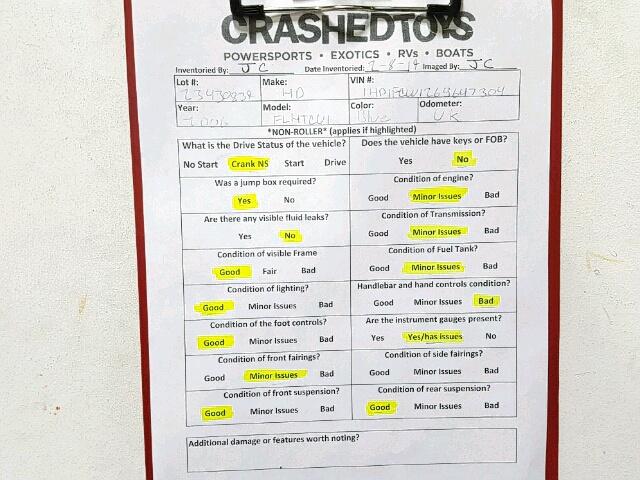 CRASHEDTOYS
POWERSPORTS • EXOTICS • RVs • BOATS
Inventoried By: JC Date Inventoried: 2-8-19 Imaged By: JC
Lot #: Make: VIN #:
HD
Year: Model: Color: Odometer:
2006 FLHTCUI Blue UK
*NON-ROLLER* (applies if highlighted)
What is the Drive Status of the vehicle? Does the vehicle have keys or FOB?
No Start Crank NS Start Drive Yes No
Was a jump box required? Condition of engine?
Yes No Good Minor Issues Bad
Are there any visible fluid leaks? Condition of Transmission?
Yes No Good Minor Issues Bad
Condition of visible Frame Condition of Fuel Tank?
Good Fair Bad Good Minor Issues Bad
Condition of lighting? Handlebar and hand controls condition?
Good Minor Issues Bad Good Minor Issues Bad
Condition of the foot controls? Are the instrument gauges present?
Good Minor Issues Bad Yes Yes/has issues No
Condition of front fairings? Condition of side fairings?
Good Minor Issues Bad Good Minor Issues Bad
Condition of front suspension? Condition of rear suspension?
Good Minor Issues Bad Good Minor Issues Bad
Additional damage or features worth noting?